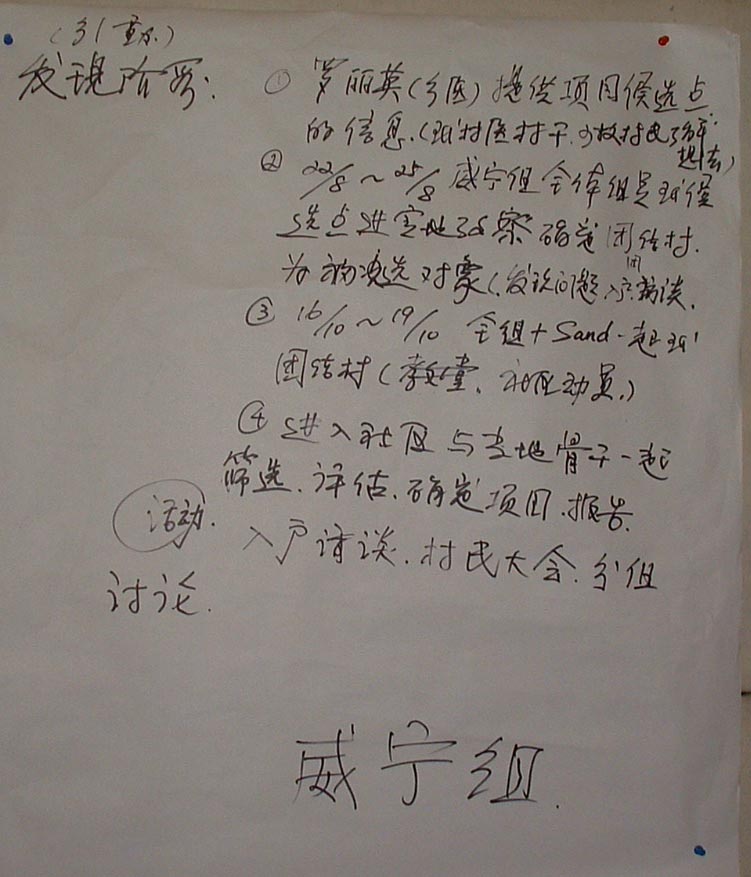 发现阶段:
① 罗丽英(乡医)提供项目候选点
的信息.(对村医村干.少数村民了解
想法)
② 22/8~25/8 威宁组全体组员对候
选点进实地考察 确定团结村.
为初选对象(发现问题 入户访谈.
③ 16/10~19/10 全组+Sand一起到
团结村( 社区动员.)
④ 进入社区与当地骨干一起
筛选.评估.确定项目.报告.
活动.
入户访谈.村民大会.分组
讨论.
威宁组.